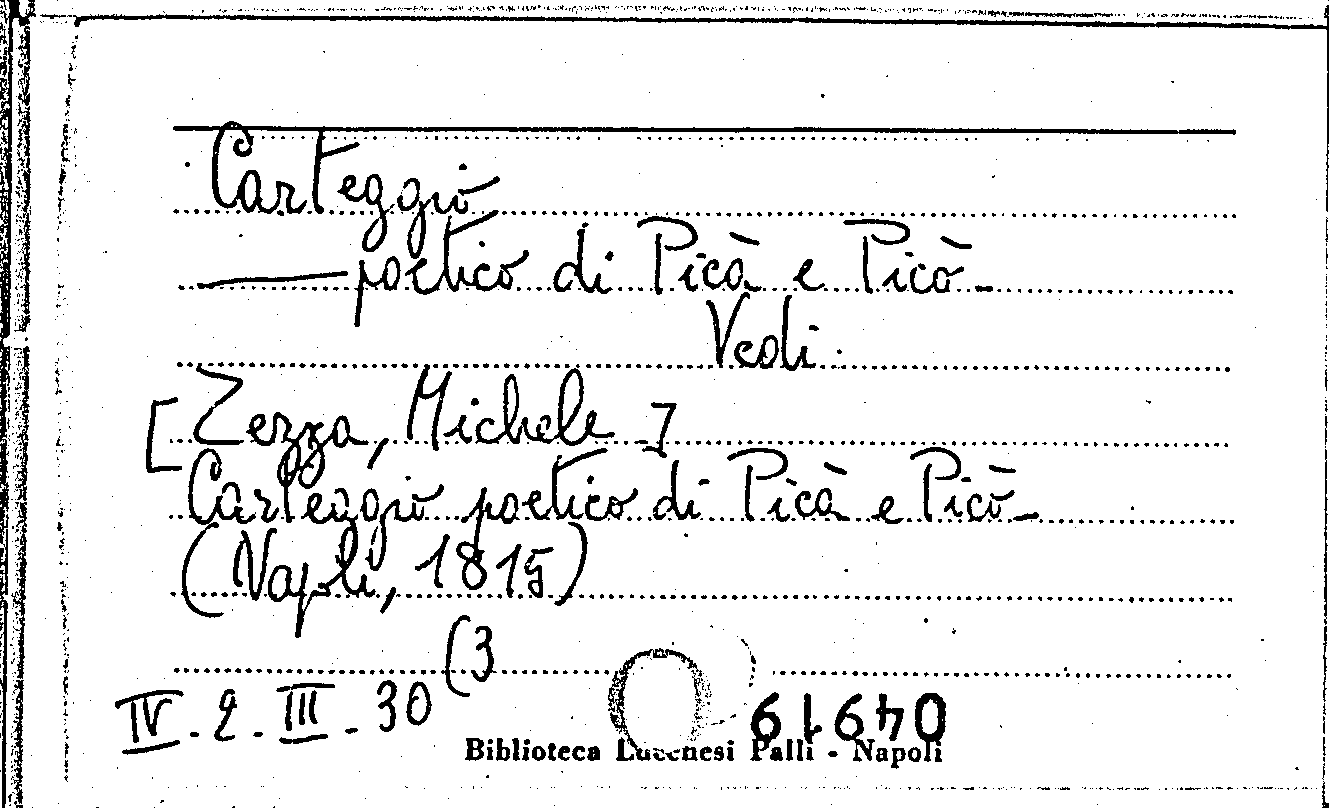 Carteggio
—— poetico di Picà e Picò -
Vedi.
[Zezza, Michele]
Carteggio poetico di Picà e Picò -
(Napoli, 1815)
IV. 2. III. 30 (3
04919
Biblioteca Lucchesi Palli - Napoli